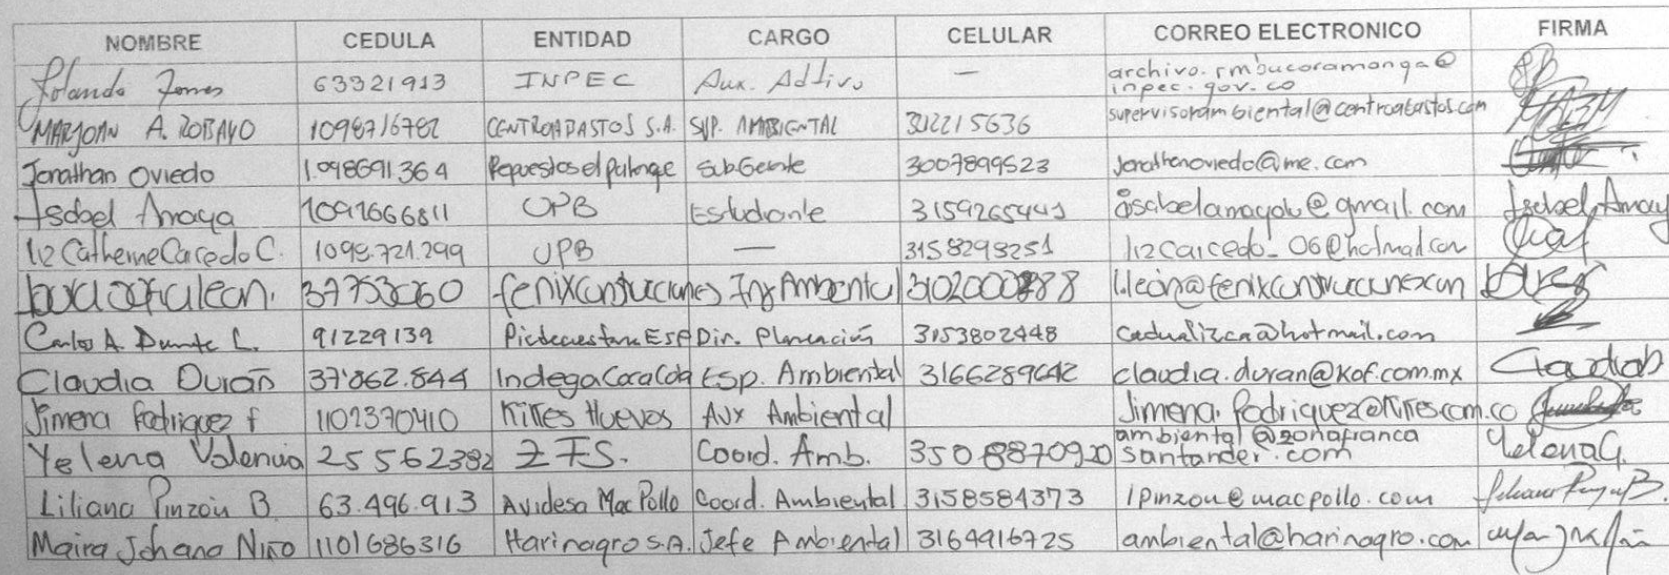 NOMBRE CEDULA ENTIDAD CARGO CELULAR CORREO ELECTRONICO FIRMA
Yolanda Torres 63321913 INPEC Aux. Adtivo — archivo.rmbucaramanga@
inpec.gov.co
MARJOAN A. ROBAYO 1098716782 CENTROABASTOS S.A. SUP. AMBIENTAL 312215636 supervisorambiental@centroabastos.com
Jonathan Oviedo 1.098691.364 Repuestos el palenque SubGerente 3007899523 jonathanoviedo@me.com
Isabel Amaya 1091666811 UPB Estudiante 3159265441 @gmail.com Isabel Amay
liz Catherine Caicedo C. 1098.721.299 UPB — 3158298251 lizcaicedo_06@hotmail.com
leon. 37753060 fenix construcciones Ing Ambiental l.leon@fenixconstrucciones.com
Carlos A. Duarte L. 91229139 Piedecuestana ESP Dir. Planeación 3153802448 cadualizca@hotmail.com
Claudia Durán 37'862.844 Indega Coca Cola Esp. Ambiental 3166289642 claudia.duran@kof.com.mx
Jimena Rodriguez f 1102370410 Kikes Huevos Aux Ambiental Jimena.Rodriguez@Kikes.com.co
Yelena Valencia 25562382 Z.F.S. Coord. Amb. 3508870920 ambiental@zonafranca
santander.com Yelena G.
Liliana Pinzón B. 63.496.913 Avidesa Mac Pollo Coord. Ambiental 3158584373 lpinzon@macpollo.com
Maira Johana Niño 1101686316 Harinagro S.A. Jefe Ambiental 3164916725 ambiental@harinagro.com